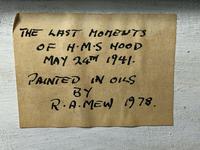 THE LAST MOMENTS
OF H·M·S HOOD
MAY 24TH 1941.
PAINTED IN OILS
BY
R.A.MEW 1978.